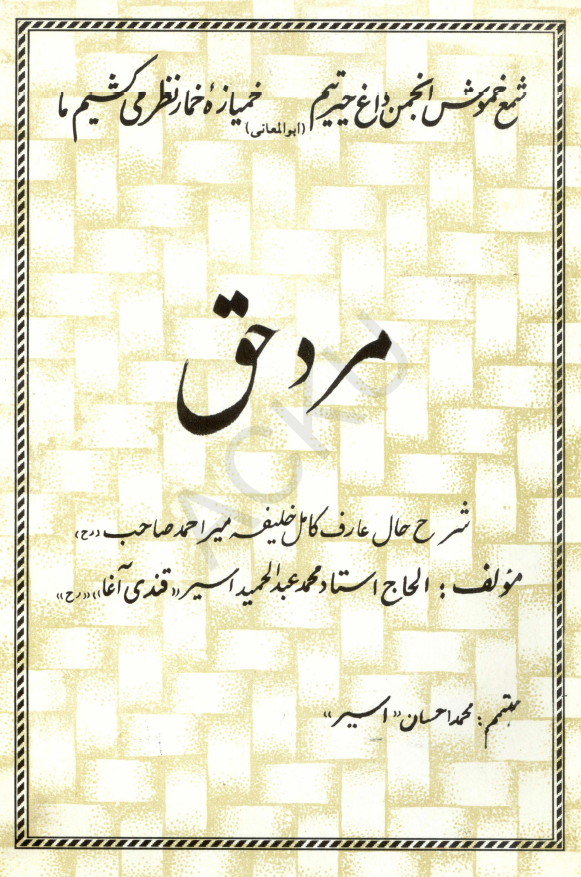 شمع خموش انجمن داغ حیرتیم خمیازهٔ خمار نظر می کشیم ما
(ابوالمعانی)
مرد حق
ACKU
شرح حال عارف کامل خلیفه میر احمد صاحب (رح)
مؤلف : الحاج استاد محمد عبدالحمید اسیر «قندی آغا» «رح»
مهتمم : محمد احسان «اسیر»